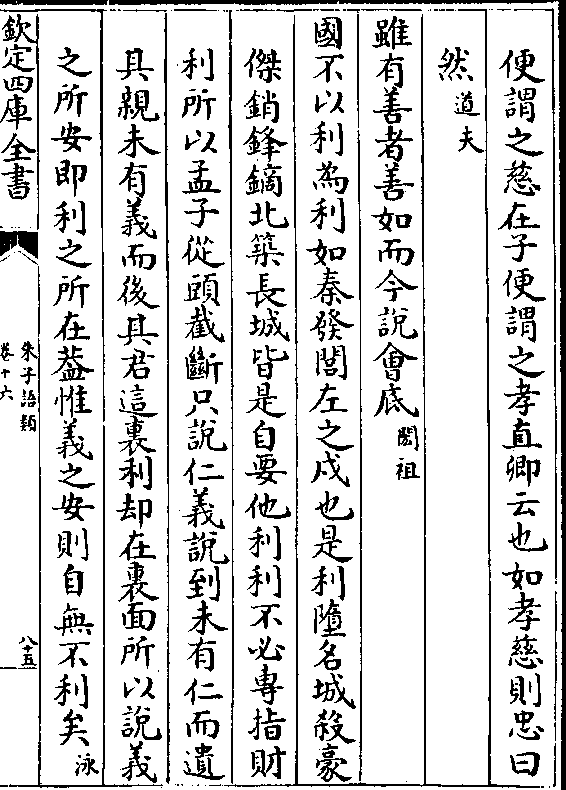 便謂之慈在子便謂之孝直卿云也如孝慈則忠曰
然道夫
雖有善者善如而今說會底閎祖
國不以利為利如秦發閭左之戍也是利墮名城殺豪
傑銷鋒鏑北築長城皆是自要他利利不必專指財
利所以孟子從頭截斷只說仁義說到未有仁而遺
其親未有義而後其君這裏利却在裏面所以說義
之所安即利之所在葢惟義之安則自無不利矣泳
欽定四庫全書
朱子語類
卷十六
八十五